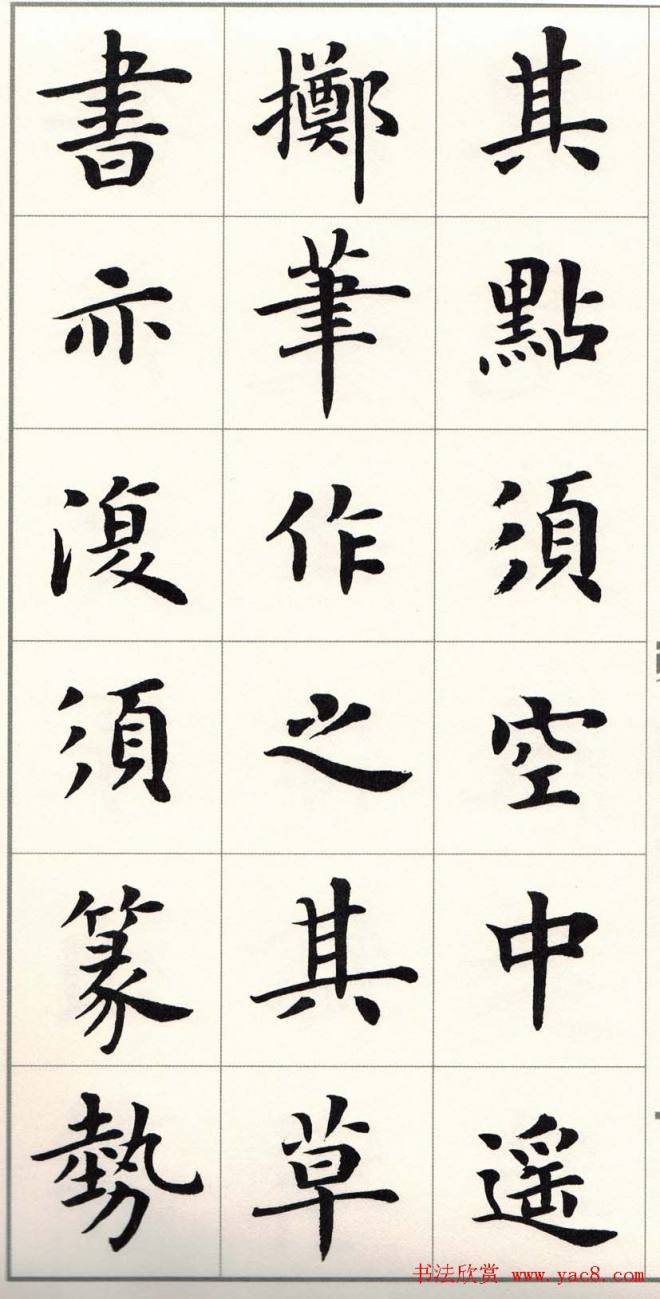 其點須空中遥
擲筆作之其草
書亦復須篆勢
书法欣赏 www.yac8.com